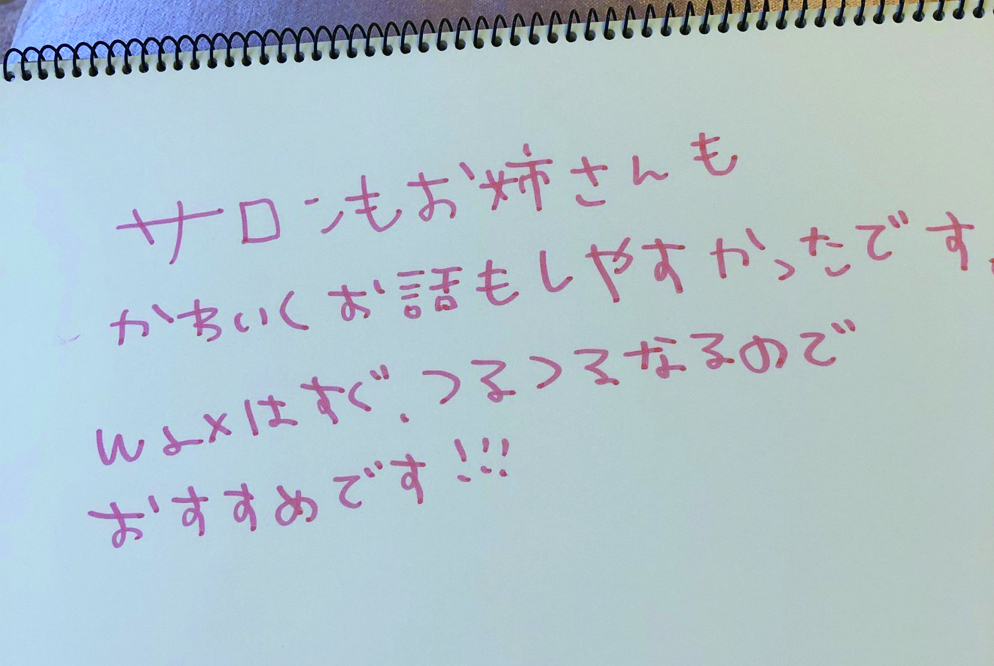 サロンもお姉さんも
かわいくお話もしやすかったです。
waxはすぐ、つるつるなるので
おすすめです!!!